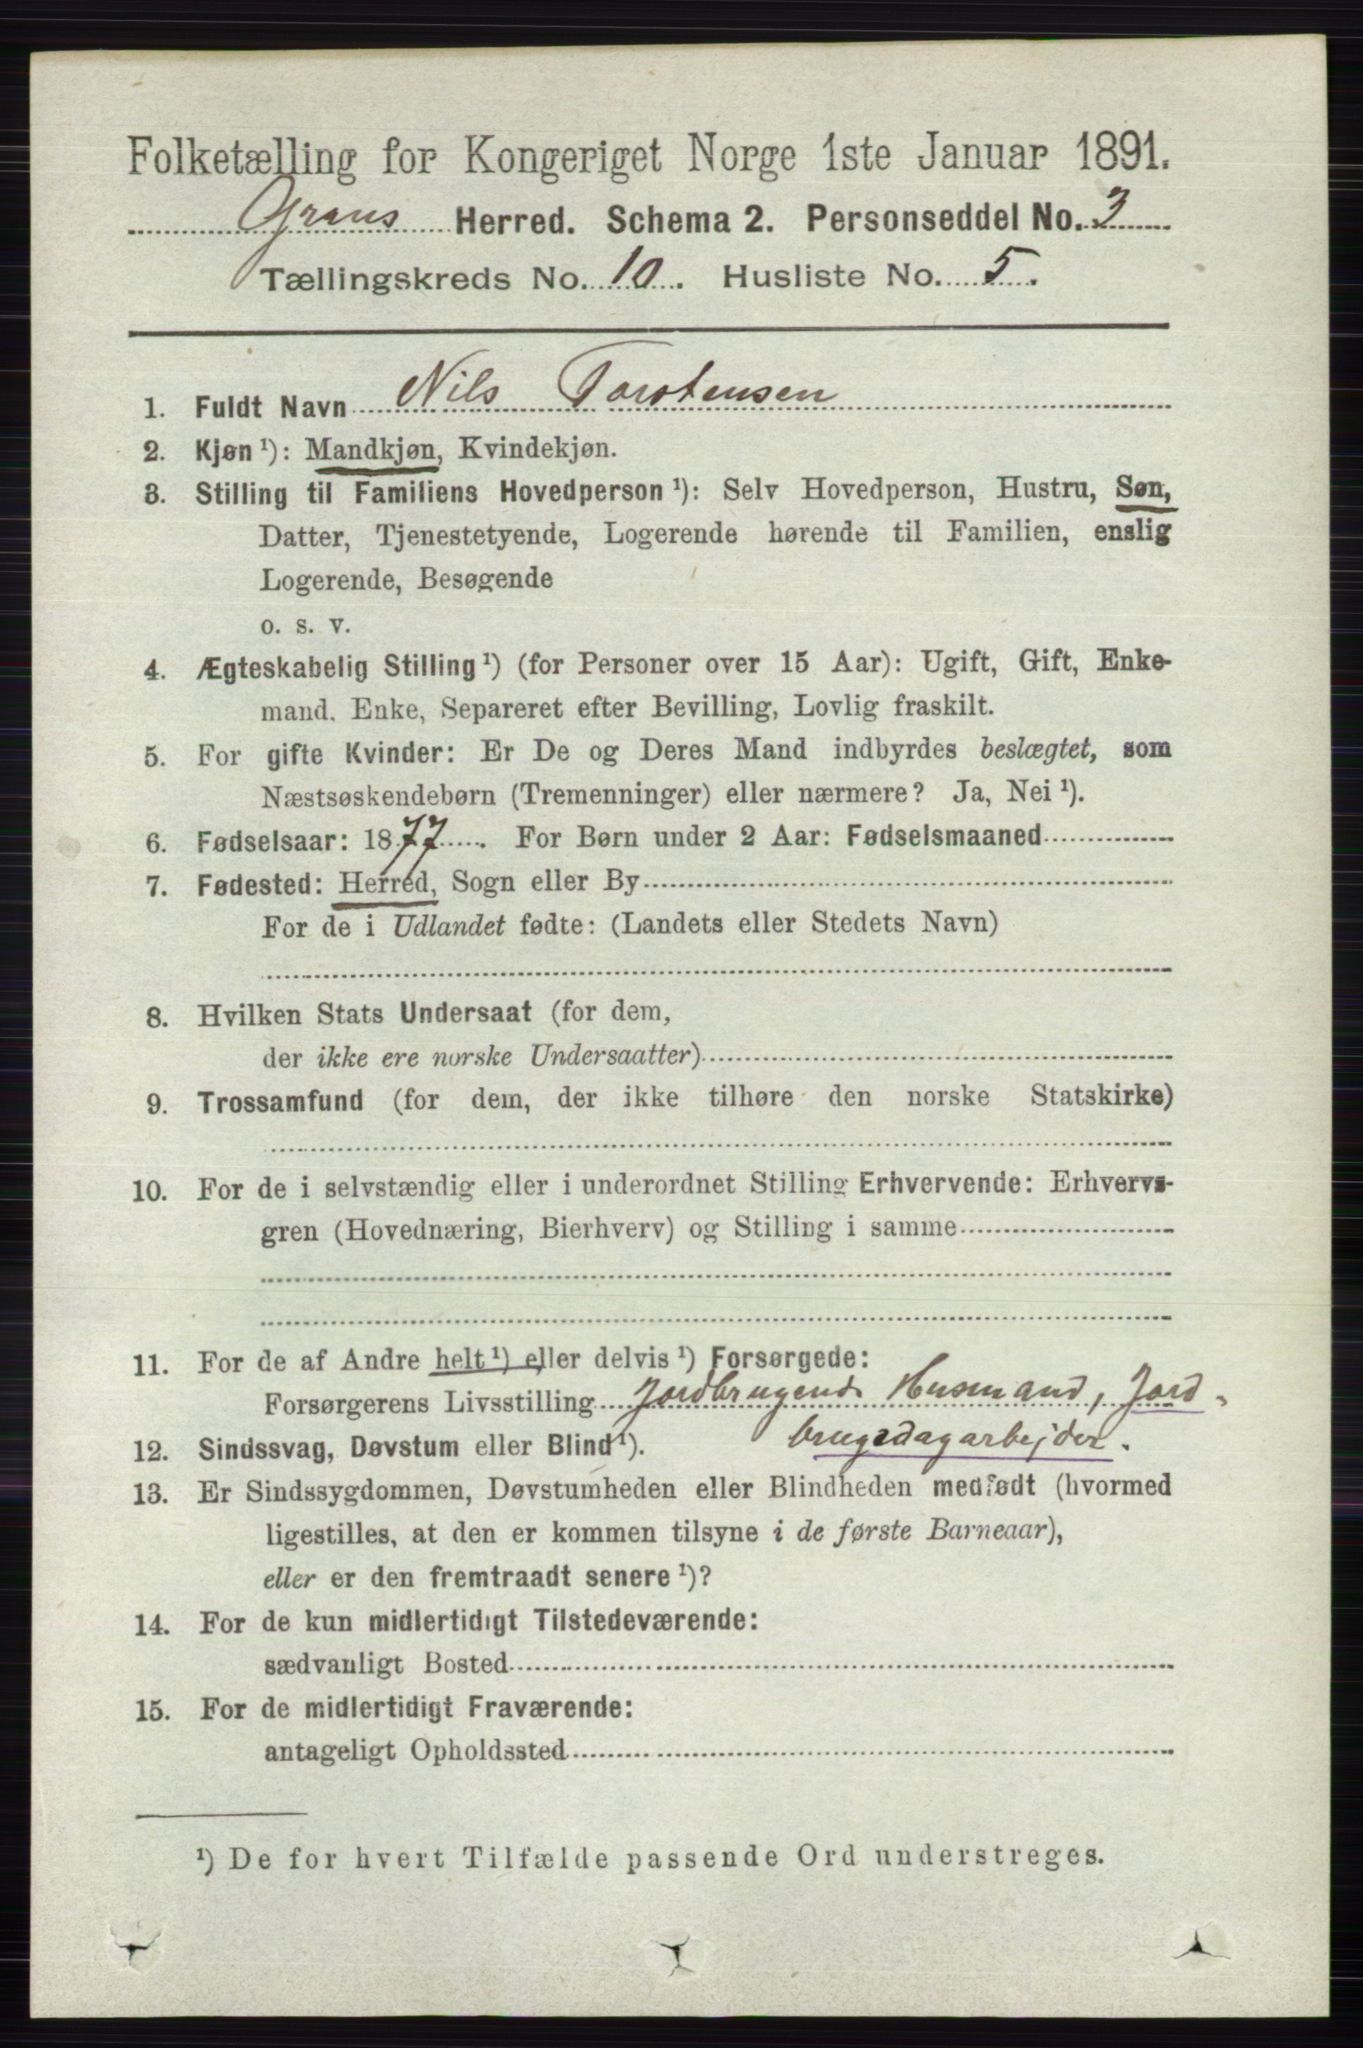 Folketælling for Kongeriget Norge 1ste Januar 1891.
Grans Herred. Schema 2. Personseddel No. 3
Tællingskreds No. 10. Husliste No. 5.
1. Fuldt Navn Nils Torstensen
2. Kjøn ¹): Mandkjøn, Kvindekjøn.
3. Stilling til Familiens Hovedperson ¹): Selv Hovedperson, Hustru, Søn,
Datter, Tjenestetyende, Logerende hørende til Familien, enslig
Logerende, Besøgende
o. s. v.
4. Ægteskabelig Stilling ¹) (for Personer over 15 Aar): Ugift, Gift, Enke-
mand, Enke, Separeret efter Bevilling, Lovlig fraskilt.
5. For gifte Kvinder: Er De og Deres Mand indbyrdes beslægtet, som
Næstsøskendebørn (Tremenninger) eller nærmere? Ja, Nei ¹).
6. Fødselsaar: 1877. For Børn under 2 Aar: Fødselsmaaned
7. Fødested: Herred, Sogn eller By
For de i Udlandet fødte: (Landets eller Stedets Navn)
8. Hvilken Stats Undersaat (for dem,
der ikke ere norske Undersaatter)
9. Trossamfund (for dem, der ikke tilhøre den norske Statskirke)
10. For de i selvstændig eller i underordnet Stilling Erhvervende: Erhvervs-
gren (Hovednæring, Bierhverv) og Stilling i samme
11. For de af Andre helt ¹) eller delvis ¹) Forsørgede:
Forsørgerens Livsstilling Jordbrugende Husmand, Jord-
12. Sindssvag, Døvstum eller Blind ¹). brugsdagarbejder.
13. Er Sindssygdommen, Døvstumheden eller Blindheden medfødt (hvormed
ligestilles, at den er kommen tilsyne i de første Barneaar),
eller er den fremtraadt senere ¹)?
14. For de kun midlertidigt Tilstedeværende:
sædvanligt Bosted
15. For de midlertidigt Fraværende:
antageligt Opholdssted
¹) De for hvert Tilfælde passende Ord understreges.